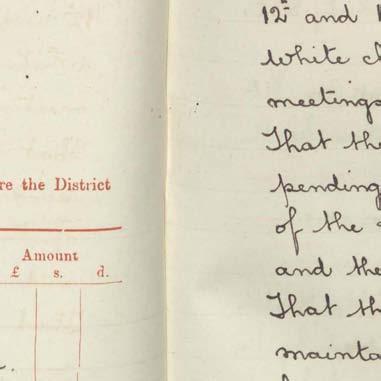 re the District
Amount
£ s. d.
12- and
white ch
meetings
That the
pending
of the
and the
That th
mainta